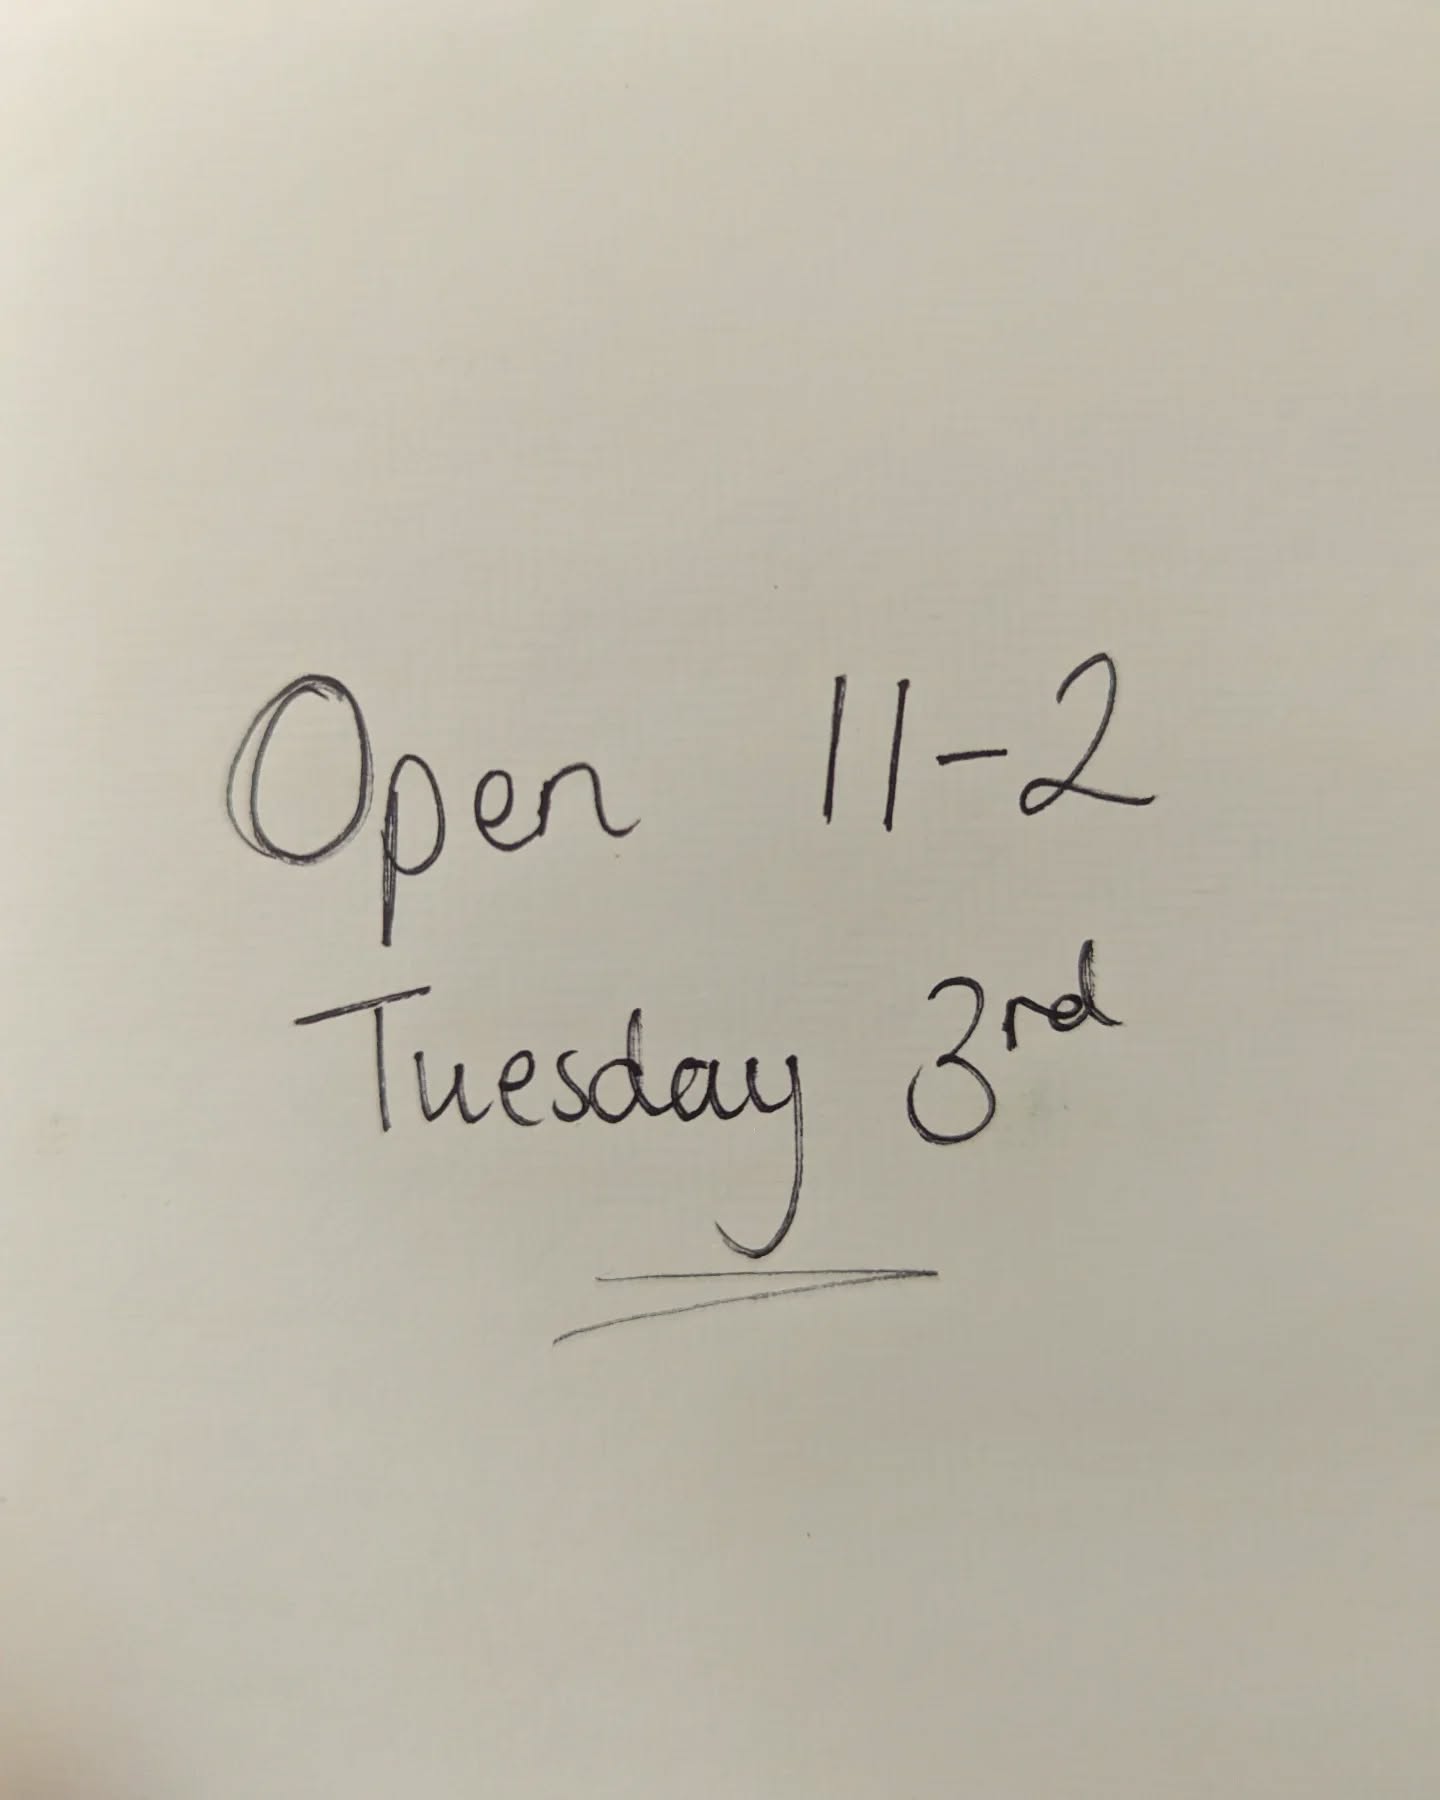 Open 11-2
Tuesday 3rd